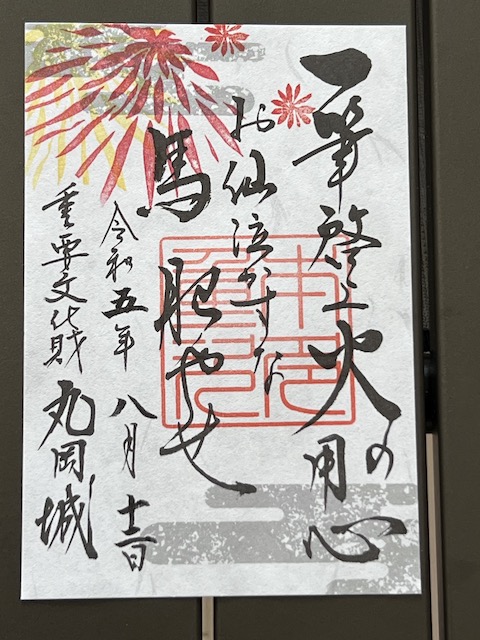 一筆啓上火の用心
お仙泣かすな
馬肥やせ
令和五年八月十二日
重要文化財丸岡城